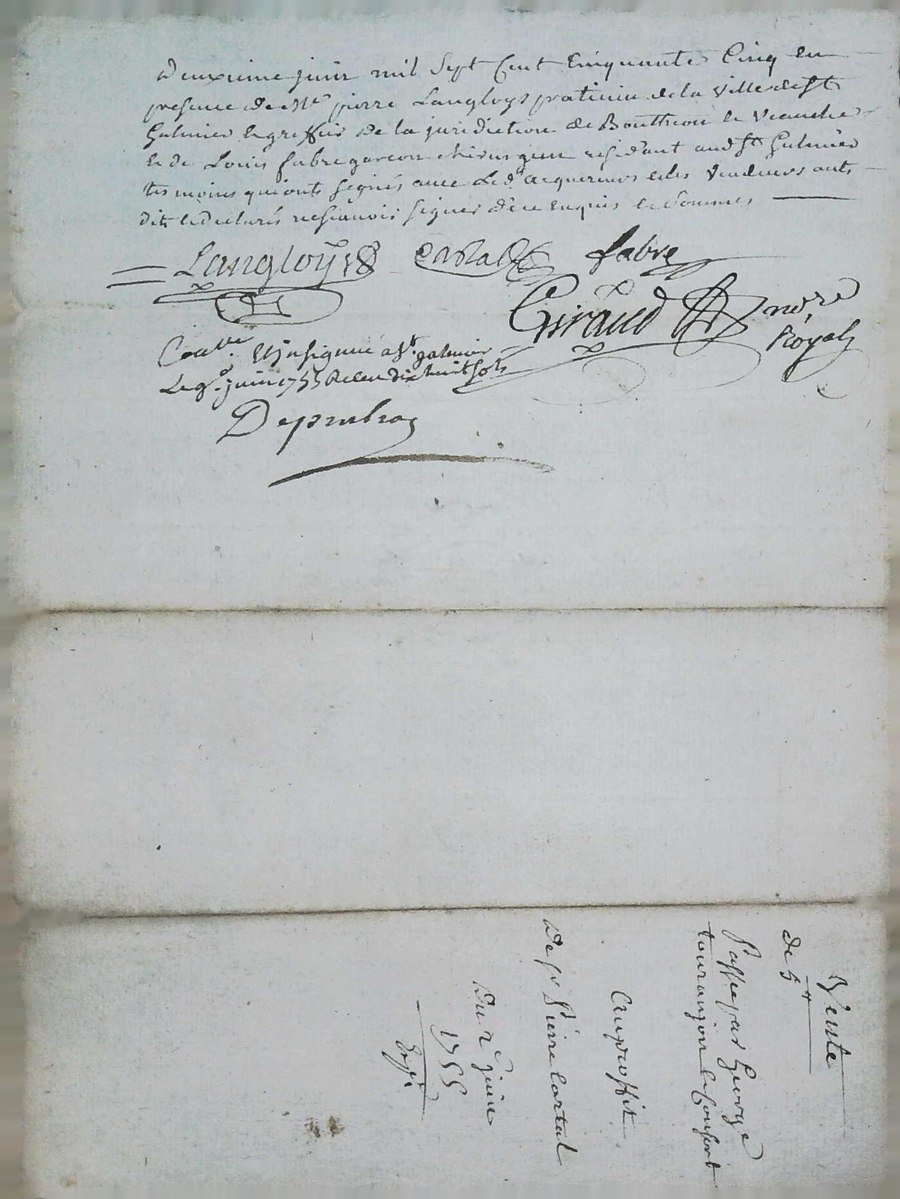 deuxieme juin mil sept cent cinquante cinq en
presence de Me pierre Langloys praticien de la ville de st
Galmier & greffier de la juridiction de Bouthéon & Veauche
& de Louis fabre garcon chirurgien residant aud st Galmier
tesmoins qui onts signés avec led acquereurs & les vendeurs onts
dit & declarés ne scavoir signer de ce enquis & sommes
Langloys Cartal fabre
Giraud nore
Royal
Conlle Et insignué a st galmier
Le 9e juin 1755 Receu dix huit sols
Vente
de 5tt
Passée par George
tourangon & Consort
Au proffit
De sr Pierre Cartal
Du 2e juin
1755
Expt